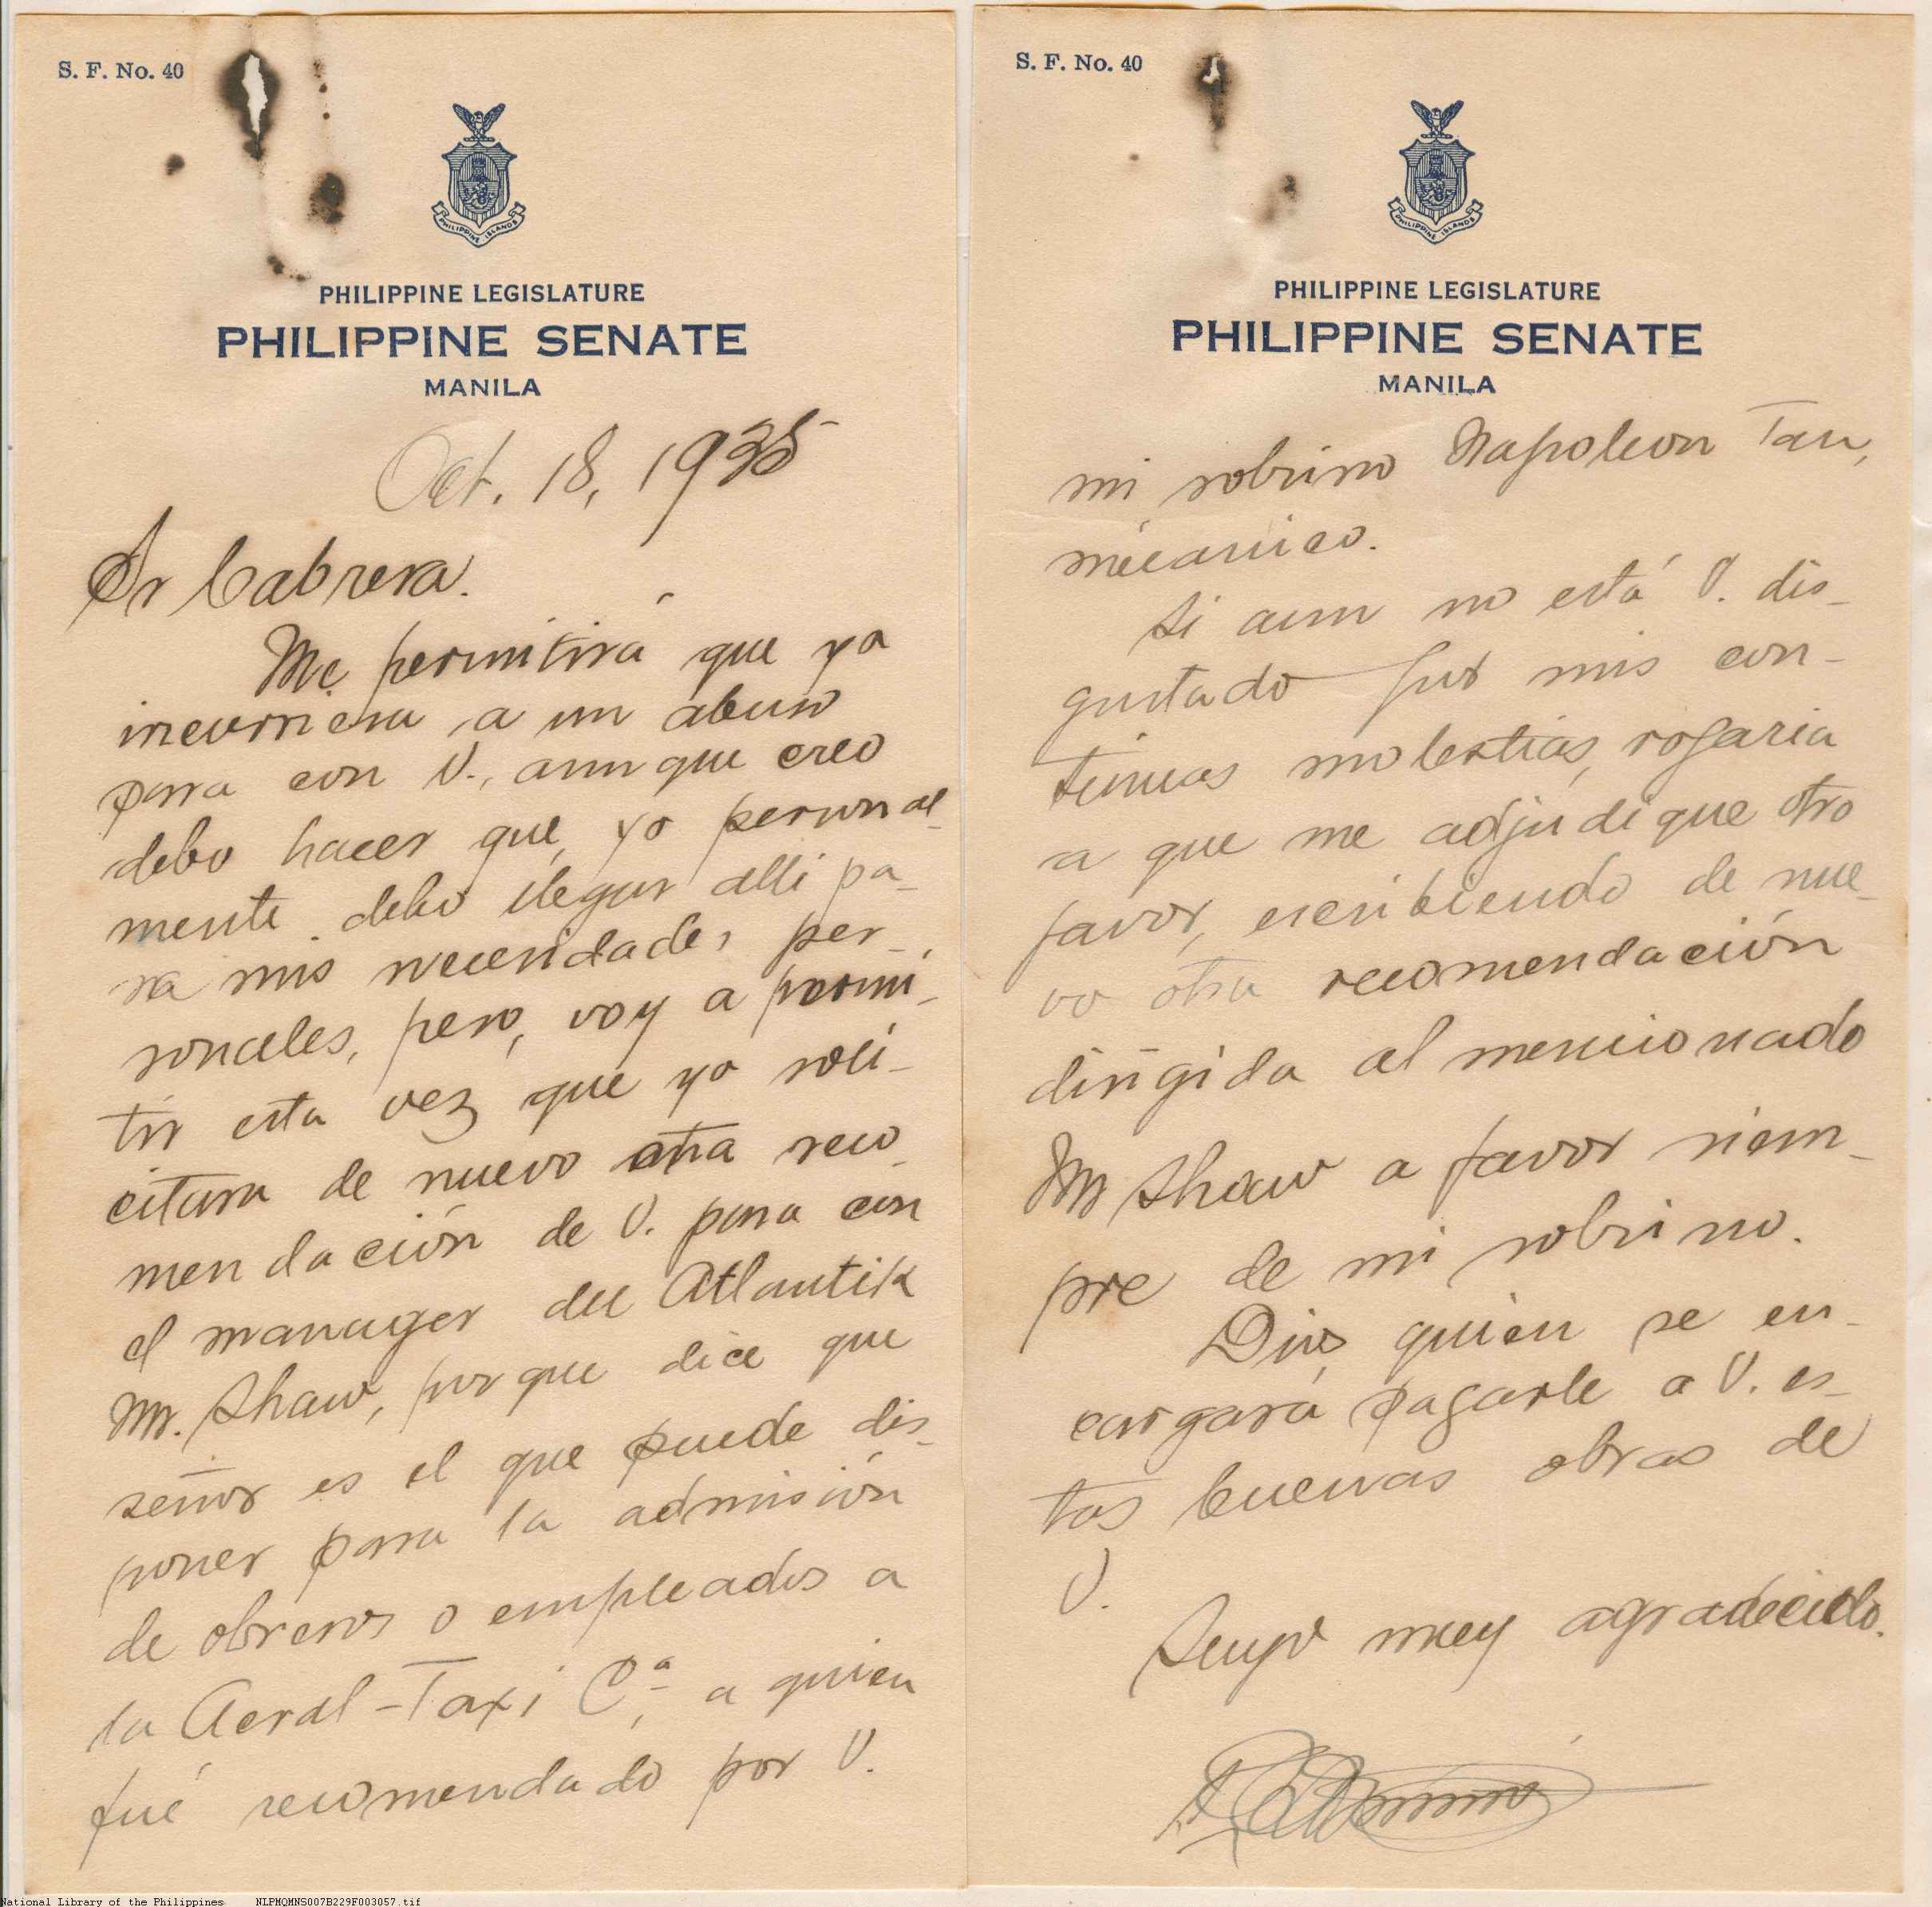 S. F. No. 40
PHILIPPINE ISLANDS
PHILIPPINE LEGISLATURE
PHILIPPINE SENATE
MANILA
Oct. 18, 1935
Sr Cabrera.
Me permitirá que yo
incurriera a un abuso
para con V., aunque creo
debo hacer que, yo personal-
mente debo llegar alli pa-
ra mis necesidades per-
sonales, pero, voy a permi-
tir esta vez que yo soli-
citara de nuevo otra reco-
mendación de V. para con
el manager del Atlantik
Mr. Shaw, porque dice que
señor es el que puede dis-
poner para la admisión
de obreros o empleados a
la Aeral-Taxi Cª, a quien
fué recomendado por V.
S. F. No. 40
PHILIPPINE ISLANDS
PHILIPPINE LEGISLATURE
PHILIPPINE SENATE
MANILA
mi sobrino Napoleon Tan,
mécanico.
Si aun no está V. dis-
gustado por mis con-
tinuas molestias, rogaria
a que me adjudique otro
favor, escribiendo de nue-
vo otra recomendación
dirigida al mencionado
Mr Shaw a favor siem-
pre de mi sobrino.
Dios quien se en-
cargará pagarle a V. es-
tas buenas obras de
V.
Suyo muy agradecido.
National Library of the Philippines NLPMQMNS007B229F003057.tif